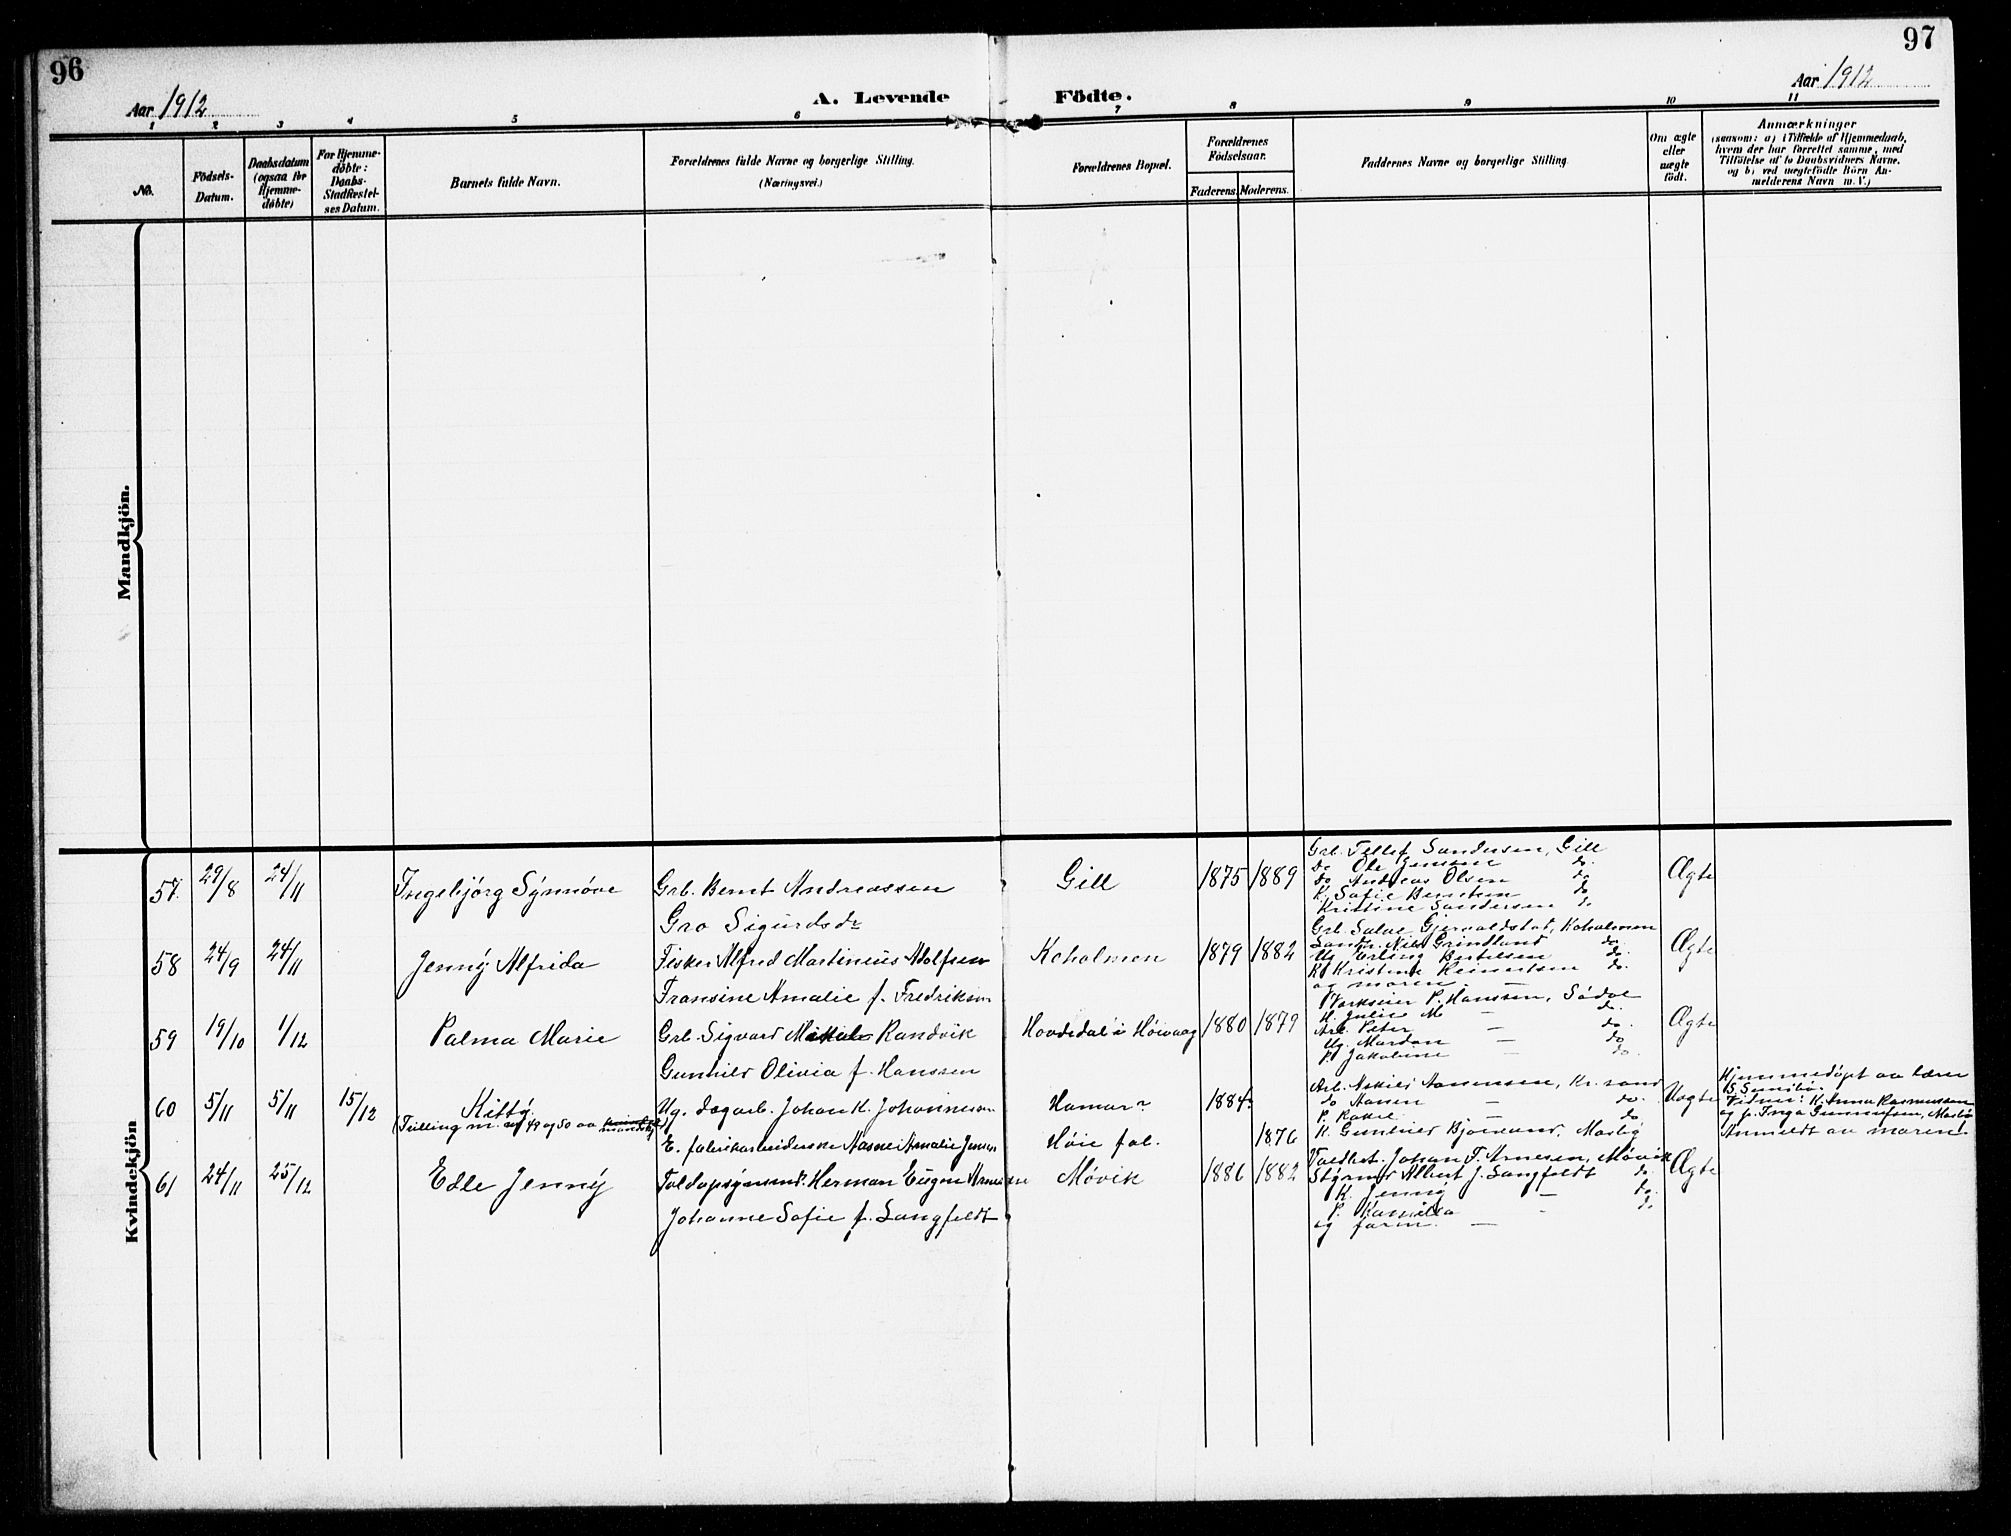 96
97
Aar 1912
A. Levende Födte.
Aar 1912
1 2 3 4 5 6 7 8 9 10 11
No.
Födsels-Datum.
Daabsdatum (ogsaa for Hjemme-döbte)
For Hjemme-döbte: Daabs-Stadfæstel-ses Datum.
Barnets fulde Navn.
Forældrenes fulde Navne og borgerlige Stilling.
(Næringsvei.)
Forældrenes Bopæl.
Forældrenes Födselsaar.
Faderens. Moderens.
Faddernes Navne og borgerlige Stilling.
Om ægte eller uægte födt.
Anmærkninger
(saasom: a) i Tilfælde af Hjemmedaab,
hvem der har forrettet samme, med
Tilföielse af to Daabsvidners Navne,
og b) ved uægtefödte Börn An-
melderens Navn m. V.)
Mandkjön.
Kvindekjön
57. 29/8 24/11 Ingebjörg Synnöve Grb. Bernt Andreassen Gill 1875 1889 Ægte
Gro Sigurdsdr
Grb. Tellef Sandersen, Gill
do Ole Jensen do.
do Andreas Olsen do
K. Sofie Berntsen do
Kristine Sandersen do
58 24/9 24/11 Jenny Alfrida Fisker Alfred Martinius Adolfsen Koholmen 1879 1882 Ægte
Fransine Amalie f. Fredriksen
Grb. Salve Gjervoldstad, Koholmen
Nils Grindland do.
Ug. Erling Bertelsen do
K. Kristine Reinertsen do.
og moren —
59 19/10 1/12 Palma Marie Grb. Sigvard Randvik Hovdedal i Höivaag 1880 1879 Ægte
Gunhild Olivia f. Hanssen
P. Hanssen, Södal
K. Julie M — do.
Arb. Peter — do.
Ug. Mardon — do
P. Jakobine — do.
60 5/11 5/11 15/12 Kitty Ug. dagarb. Johan K. Johannesen Hamar? 1884? Uægte
(Trilling m. 49 og 50 av mandkj)
E. fabrikarbeiderske Aasne Amalie Jensen Höie fab. 1876
Arb. Askild Aanensen, Kr.sand
do Hansen — do.
P. Rakel — do
K. Gunhild Bjorvand, Mosby
Hjemmedöpt av lærer
Vidner: K. Anna Rasmussen
og p. Inga Gunnufsen, Mosby
Anmeldt av moren.
61 24/11 25/12 Edle Jenny Toldopsynsmd. Herman Eugen Arnesen Mövik 1886 1882 Ægte
Johanne Sofie f. Langfeldt
Toldbet. Johan F. Arnesen, Mövik
Styrmd Albert J. Langfeldt do
K. Jenny — do.
P. Kamilla — do
og farm. —